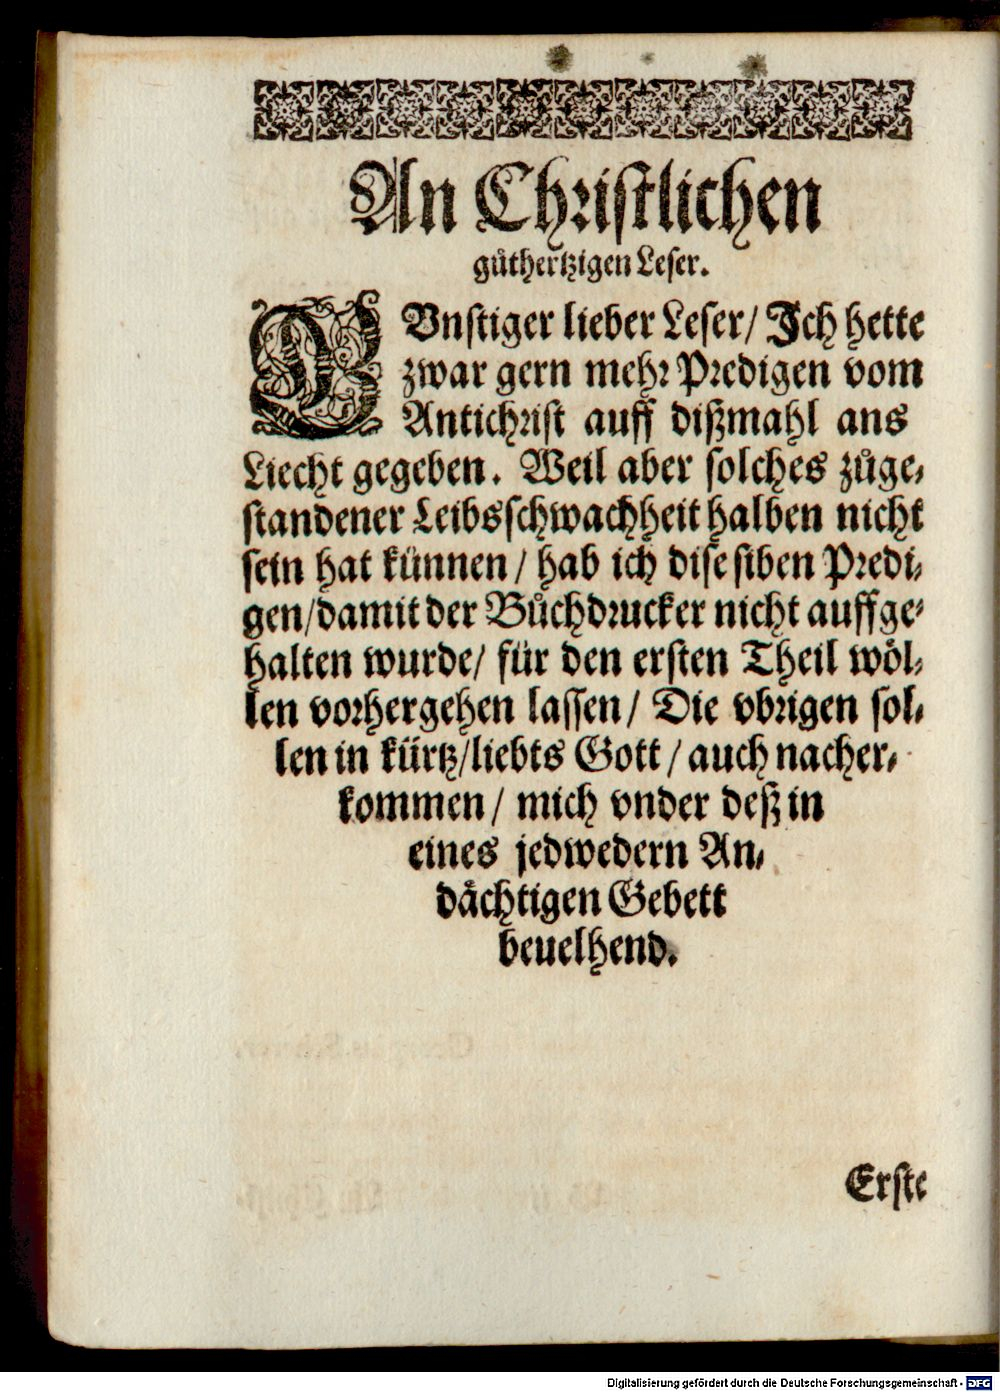 An Christlichen
gůthertzigen Leser.
GVnstiger lieber Leser/ Ich hette
zwar gern mehr Predigen vom
Antichrist auff dißmahl ans
Liecht gegeben. Weil aber solches zůge-
standener Leibsschwachheit halben nicht
sein hat künnen / hab ich dise siben Predi-
gen/damit der Bůchdrucker nicht auffge-
halten wurde/ für den ersten Theil wöl-
len vorhergehen lassen/ Die vbrigen sol-
len in kürtz/liebts Gott / auch nacher-
kommen / mich vnder deß in
eines jedwedern An-
dächtigen Gebett
beuelhend.
Erste
Digitalisierung gefördert durch die Deutsche Forschungsgemeinschaft - DFG